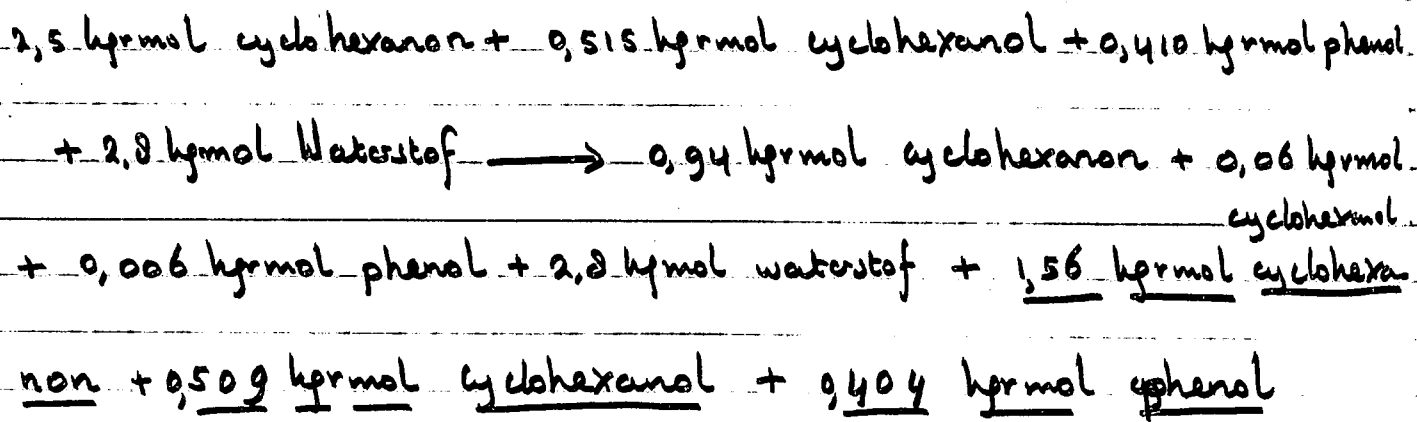 2,5 kgrmol cyclohexanon + 0,515 kgrmol cyclohexanol + 0,410 kgrmol phenol
+ 2,8 kgmol Waterstof → 0,94 kgrmol cyclohexanon + 0,06 kgrmol
cyclohexanol
+ 0,006 kgrmol phenol + 2,8 kgmol waterstof + 1,56 kgrmol cyclohexa
non + 0,509 kgrmol cyclohexanol + 0,404 kgrmol phenol